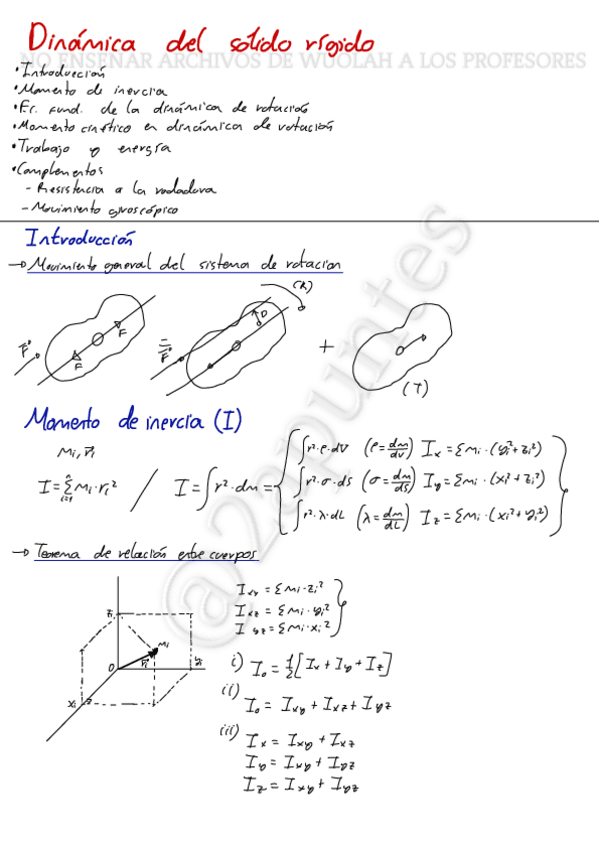 Dinámica del sólido rígido
NO ENSEÑAR ARCHIVOS DE WUOLAH A LOS PROFESORES
• Introducción
• Momento de inercia
• Ec. fund. de la dinámica de rotación
• Momento cinético en dinámica de rotación
• Trabajo y energía
• Complementos
- Resistencia a la rodadura
- Movimiento giroscópico
Introducción
→ Movimiento general del sistema de rotacion
(R)
F F F F D + (T)
Momento de inercia (I)
mᵢ, r⃗ᵢ
I = Σ mᵢ·rᵢ² / I = ∫r²·dm =
∫r²·ρ·dV (ρ = dm/dV) Iₓ = Σmᵢ·(yᵢ²+zᵢ²)
∫r²·σ·dS (σ = dm/dS) I_y = Σmᵢ·(xᵢ²+zᵢ²)
∫r²·λ·dL (λ = dm/dL) I_z = Σmᵢ·(xᵢ²+yᵢ²)
→ Teorema de relación entre cuerpos
I_xy = Σmᵢ·zᵢ²
I_xz = Σmᵢ·yᵢ²
I_yz = Σmᵢ·xᵢ²
zᵢ mᵢ r⃗ᵢ O yᵢ xᵢ
i) I₀ = 1/2[Iₓ + I_y + I_z]
ii) I₀ = I_xy + I_xz + I_yz
iii) Iₓ = I_xy + I_xz
I_y = I_xy + I_yz
I_z = I_xy + I_yz
@22apuntes